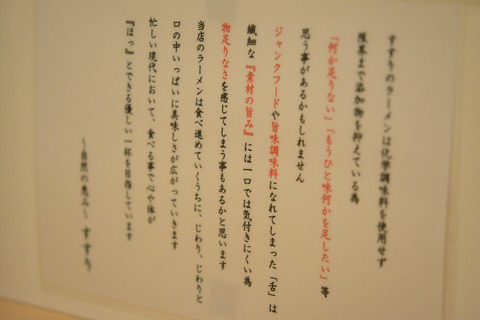 すすりのラーメンは化学調味料を使用せず
限界まで添加物を抑えている為
「何か足りない」「もうひと味何かを足したい」等
思う事があるかもしれません
ジャンクフードや旨味調味料になれてしまった「舌」は
繊細な『素材の旨み』には一口では気付きにくい為
物足りなさを感じてしまう事もあるかと思います
当店のラーメンは食べ進めていくうちに、じわり、じわりと
口の中いっぱいに美味しさが広がっていきます
忙しい現代において、食べる事で心や体が
『ほっ』とできる優しい一杯を目指しています
～自然の恵み～すすり